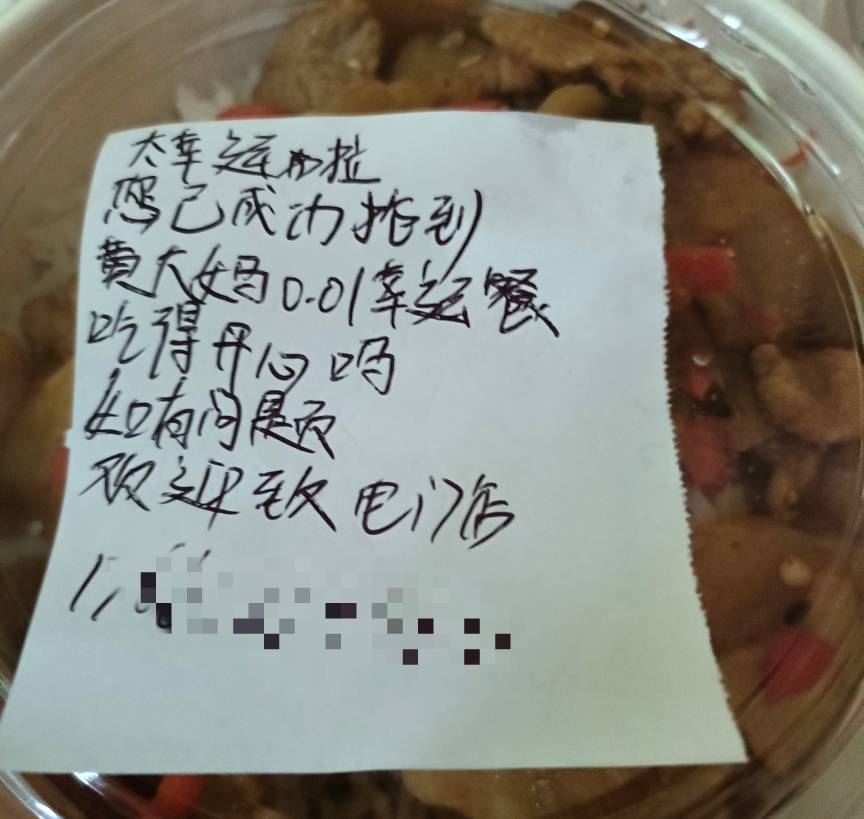 太幸运啦
您已成功抢到
黄大妈0.01幸运餐
吃得开心吗
如有问题
欢迎致电门店